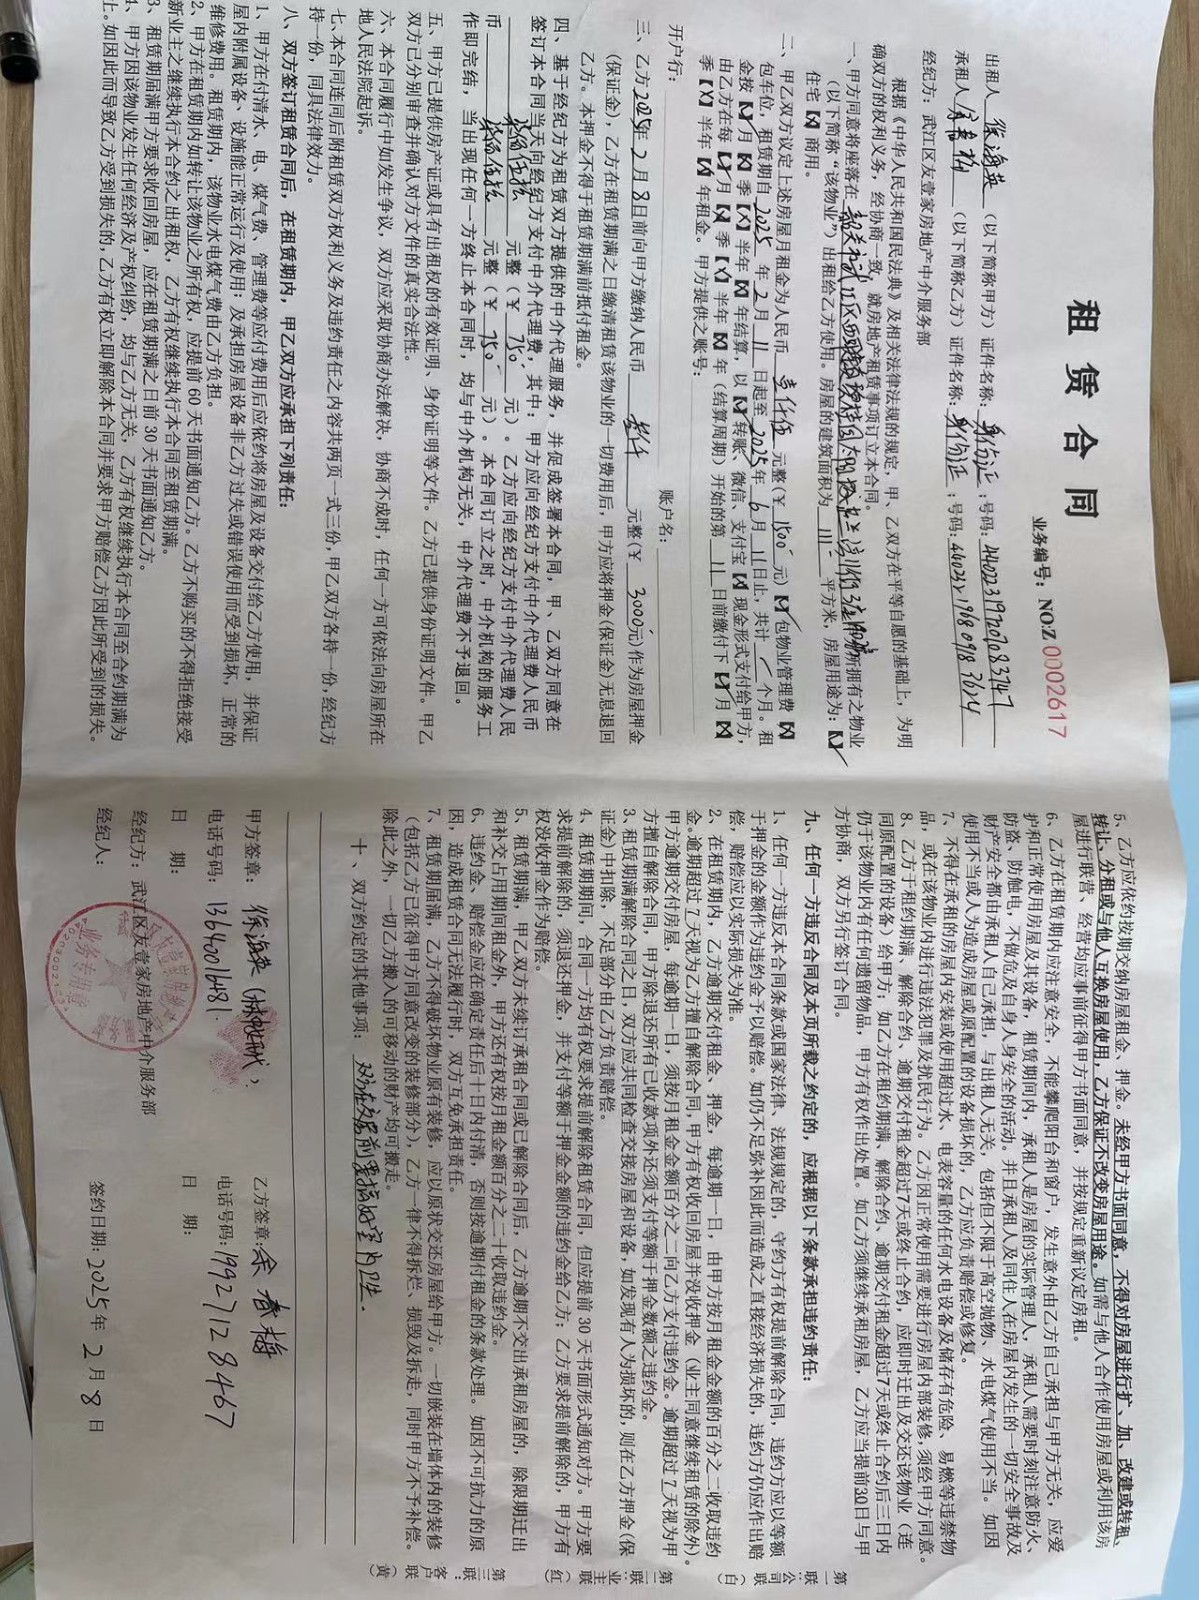 租赁合同
业务编号：NO:Z 0002617
出租人 徐海英 （以下简称甲方）证件名称：身份证：号码：
承租人 余春梅 （以下简称乙方）证件名称：身份证：号码：
经纪方：武江区友壹家房地产中介服务部
根据《中华人民共和国民法典》及相关法律法规的规定，甲、乙双方在平等自愿的基础上，为明
确双方的权利义务，经协商一致，就房地产租赁事项订立本合同。
一、甲方同意将座落在 韶关市武江区 所拥有之物业
（以下简称“该物业”）出租给乙方使用。房屋的建筑面积为 111 平方米，房屋用途为：【√】
住宅【×】商用。
二、甲乙双方议定上述房屋月租金为人民币 壹仟伍 元整（￥1500元）【√】包物业管理费【×】
包车位，租赁期自 2025 年 2 月 11 日起至 2025 年 6 月 11 日止，共计 个月。租
金按【√】月【×】季【×】半年【×】年结算，以【√】转账、微信、支付宝【×】现金形式支付给甲方，
由乙方在每【√】月【×】季【×】半年【×】年（结算周期）开始的第 11 日前缴付下【√】月【×】
季【×】半年【×】年租金。甲方提供之账号：
开户行： 账户名：
三、乙方2025年 2 月 8 日前向甲方缴纳人民币 叁仟 元整（￥ 3000元）作为房屋押金
（保证金），乙方在租赁期满之日缴清租赁该物业的一切费用后，甲方应将押金（保证金）无息退回
乙方。本押金不得于租赁期满前抵付租金。
四、基于经纪方为租赁双方提供的中介代理服务，并促成签署本合同，甲、乙双方同意在
签订本合同当天向经纪方支付中介代理费，其中：甲方应向经纪方支付中介代理费人民币
柒佰伍拾 元整（￥ 750 元）。乙方应向经纪方支付中介代理费人民
币 柒佰伍拾 元整（￥ 750 元）。本合同订立之时，中介机构的服务工
作即完结，当出现任何一方终止本合同时，均与中介机构无关，中介代理费不予退回。
五、甲方已提供房产证或具有出租权的有效证明、身份证明等文件。乙方已提供身份证明文件。甲乙
双方已分别审查并确认对方文件的真实合法性。
六、本合同履行中如发生争议，双方应采取协商办法解决，协商不成时，任何一方可依法向房屋所在
地人民法院起诉。
七、本合同连同后附租赁双方权利义务及违约责任之内容共两页一式三份，甲乙双方各持一份，经纪方
持一份，同具法律效力。
八、双方签订租赁合同后，在租赁期内，甲乙双方应承担下列责任：
1、甲方在付清水、电、煤气费、管理费等应付费用后应依约将房屋及设备交付给乙方使用，并保证
屋内附属设备、设施能正常运行及使用；及承担房屋设备非乙方过失或错误使用而受到损坏，正常的
维修费用。租赁期内，该物业水电煤气费由乙方负担。
2、甲方在租赁期内如转让该物业之所有权，应提前 60 天书面通知乙方。乙方不购买的不得拒绝接受
新业主之继续执行本合约之出租权，乙方有权继续执行本合同至租赁期满。
3、租赁期届满甲方要求收回房屋，应在租赁期满之日前 30 天书面通知乙方。
4、甲方因该物业发生任何经济及产权纠纷，均与乙方无关，乙方有权继续执行本合同至合约期满为
止。如因此而导致乙方受到损失的，乙方有权立即解除本合同并要求甲方赔偿乙方因此所受到的损失。
5、乙方应依约按期交纳房屋租金、押金。未经甲方书面同意，不得对房屋进行扩、加、改建或转租、
转让、分租或与他人互换房屋使用，乙方保证不改变房屋用途。如需与他人合作使用房屋或利用该房
屋进行联营、经营均应事前征得甲方书面同意，并按规定重新议定房租。
6、乙方在租赁期内应注意安全，不能攀爬阳台和窗户，发生意外由乙方自己承担与甲方无关，应爱
护和正常使用房屋及其设备，租赁期间内，承租人是房屋的实际管理人，承租人需要时刻注意防火、
防盗、防触电，不做危及自身人身安全的活动。并且承租人及同住人在房屋内发生的一切安全事故及
财产安全都由承租人自己承担，与出租人无关，包括但不限于高空抛物、水电煤气使用不当。如因
使用不当或人为造成房屋或原配置的设备损坏的，乙方应负责赔偿或修复。
7、不得在承租的房屋内安装或使用超过水、电表容量的任何水电设备及储存有危险、易燃等违禁物
品，或在该物业内进行违法犯罪及扰民行为。乙方因正常使用需要进行房屋内部装修，须经甲方同意。
8、乙方于租约期满、解除合约、逾期交付租金超过7天或终止合约，应即时迁出及交还该物业（连
同原配置的设备）给甲方；如乙方在租约期满、解除合约、逾期交付租金超过7天或终止合约后三日内
仍于该物业内有任何遗留物品，甲方有权作出处置。如乙方须继续承租房屋，乙方应当提前30日与甲
方协商，双方另行签订合同。
九、任何一方违反合同及本页所载之约定的，应根据以下条款承担违约责任：
1、任何一方违反本合同条款或国家法律、法规规定的，守约方有权提前解除合同，违约方应以等额
于押金的金额作为违约金予以赔偿。如仍不足弥补因此而造成之直接经济损失的，违约方仍应作出赔
偿，赔偿应以实际损失为准。
2、在租赁期内，乙方逾期交付租金、押金，每逾期一日，由甲方按月租金金额的百分之二收取违约
金。逾期超过 7 天视为乙方擅自解除合同，甲方有权收回房屋并没收押金（业主同意继续租赁的除外）。
甲方逾期交付房屋，每逾期一日，须按月租金金额百分之二向乙方支付违约金。逾期超过 7 天视为甲
方擅自解除合同，甲方除退还所有已收款项外还须支付等额于押金数额之违约金。
3、租赁期满解除合同之日，双方应共同检查交接房屋和设备，如发现有人为损坏的，则在乙方押金（保
证金）中扣除，不足部分由乙方负责赔偿。
4、租赁期期间，合同一方均有权要求提前解除租赁合同，但应提前 30 天书面形式通知对方。甲方要
求提前解除的，须退还押金，并支付等额于押金金额的违约金给乙方；乙方要求提前解除的，甲方有
权没收押金作为赔偿。
5、租赁期满，甲乙双方未续订承租合同或已解除合同后，乙方逾期不交出承租房屋的，除限期迁出
和补交占用期间租金外，甲方还有权按月租金额百分之二十收取违约金。
6、违约金、赔偿金应在确定责任后十日内付清，否则按逾期付租金的条款处理。如因不可抗力的原
因，造成租赁合同无法履行时，双方互免承担责任。
7、租赁期届满，乙方不得破坏物业原有装修，应以原状交还房屋给甲方。一切嵌装在墙体内的装修
（包括乙方已征得甲方同意改变的装修部分），乙方一律不得拆烂、损毁及拆走，同时甲方不予补偿。
除此之外，一切乙方搬入的可移动的财产均可搬走。
十、双方约定的其他事项：
第一联：公司联（白）
第二联：业主联（红）
第三联：客户联（黄）
甲方签章：徐海英
电话号码：13640016481
日 期：
经纪方：武江区友壹家房地产中介服务部
经纪人：
业务专用章
乙方签章：余春梅
电话号码：19927128467
日 期：
签约日期：2025 年 2 月 8 日